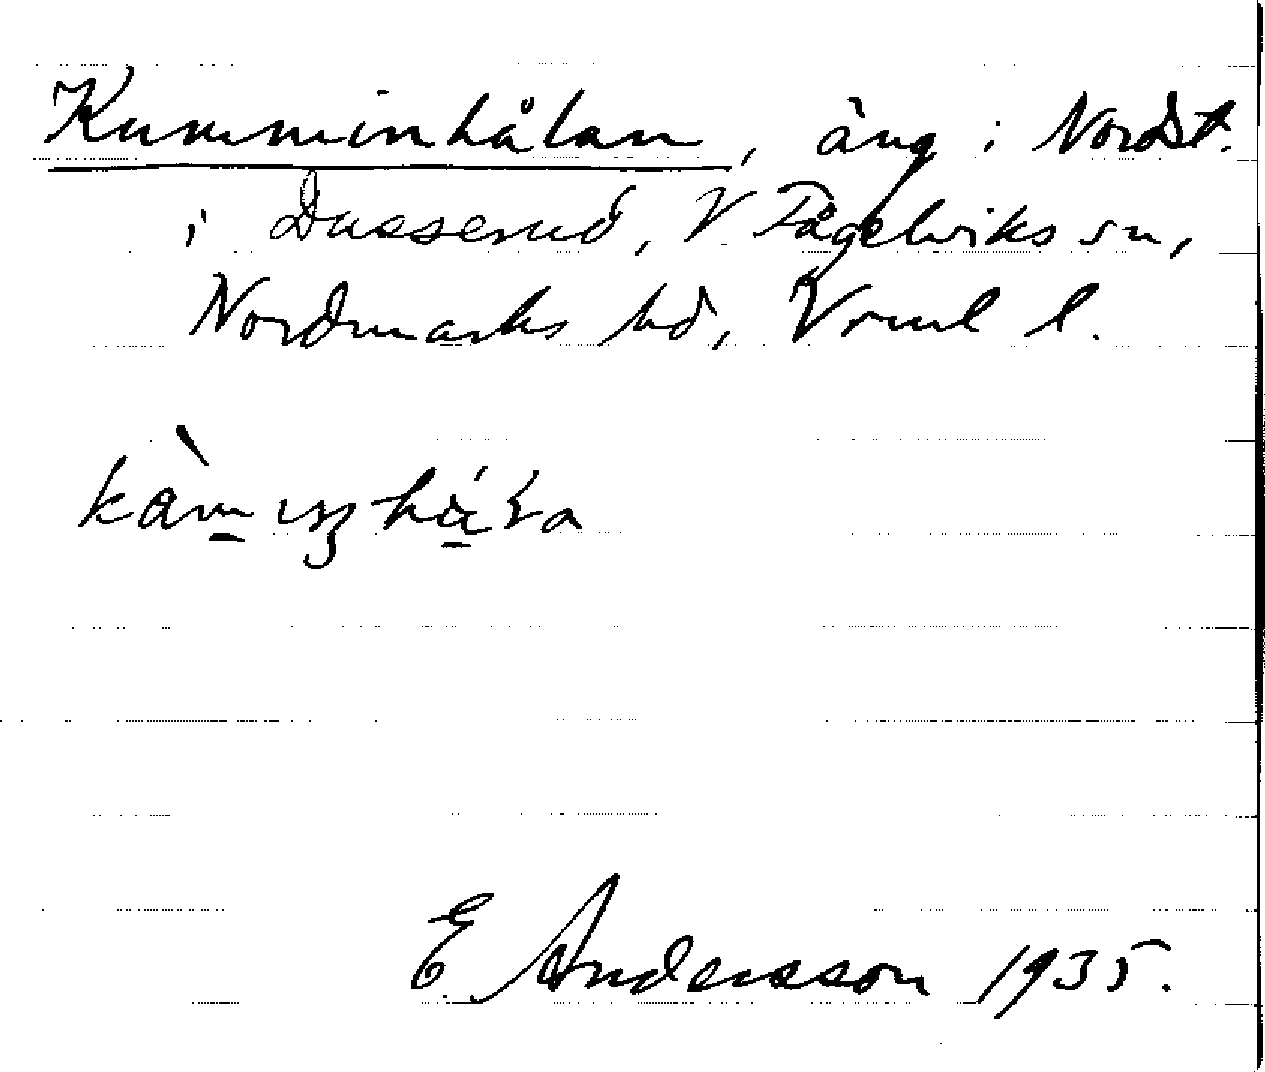 Kumminhålan, äng i Nordt.
i Dusserud, V Fågelviks sn,
Nordmarks hd, Vrml l.
E Andersson 1935.